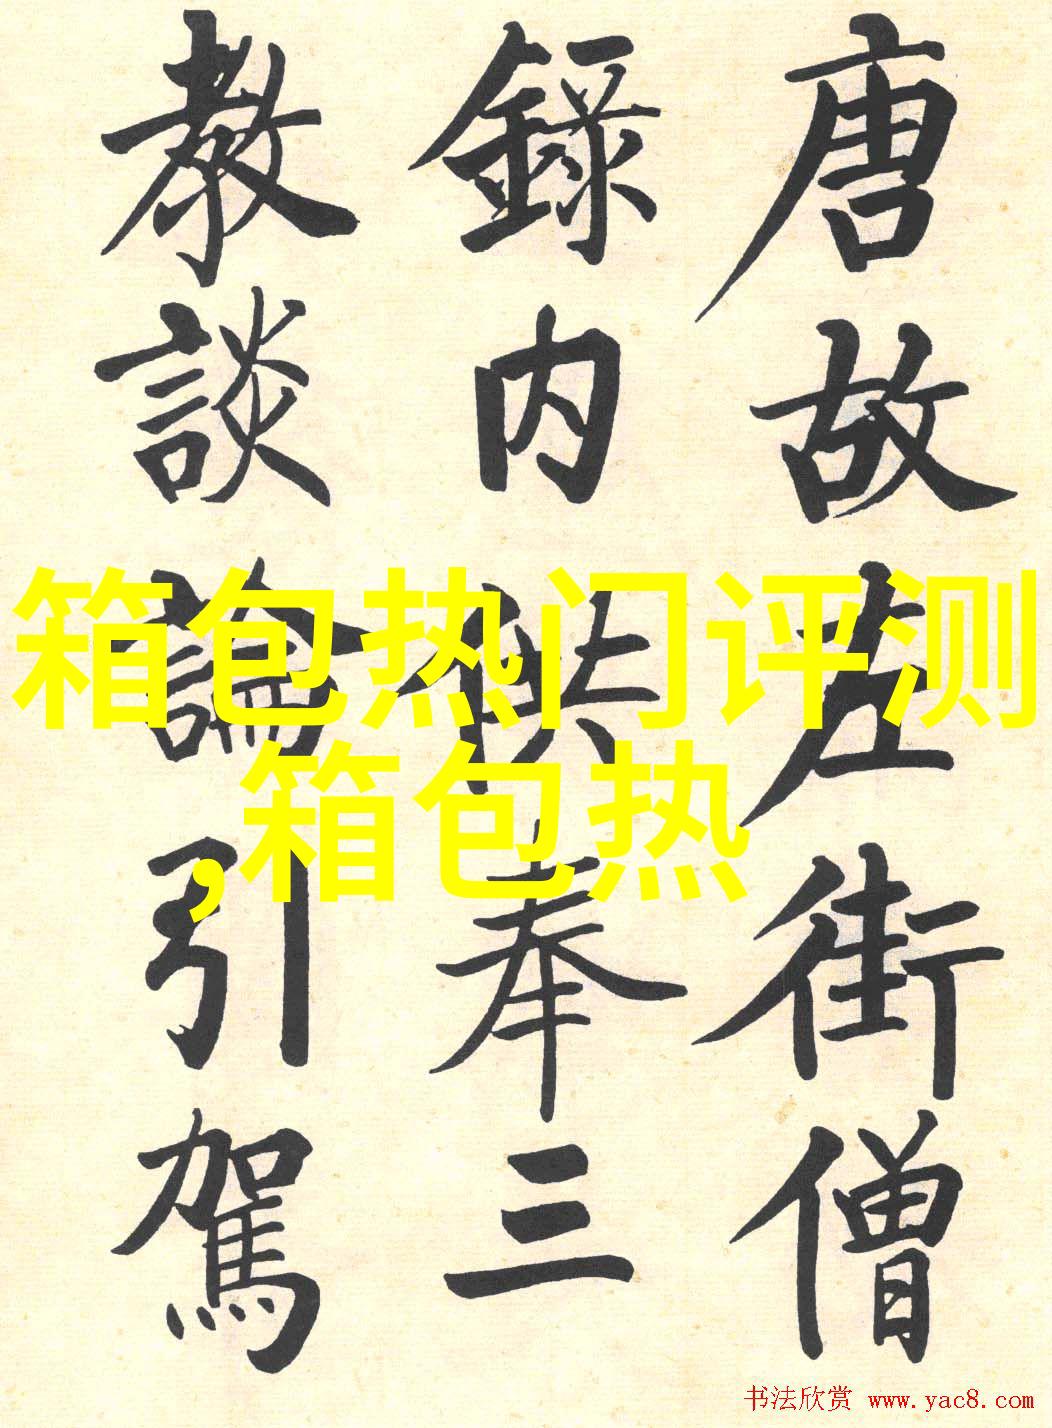 唐故左街僧
錄内供奉三
教談論引駕
箱包热门评测
,箱包热
书法欣赏 www.yac8.com